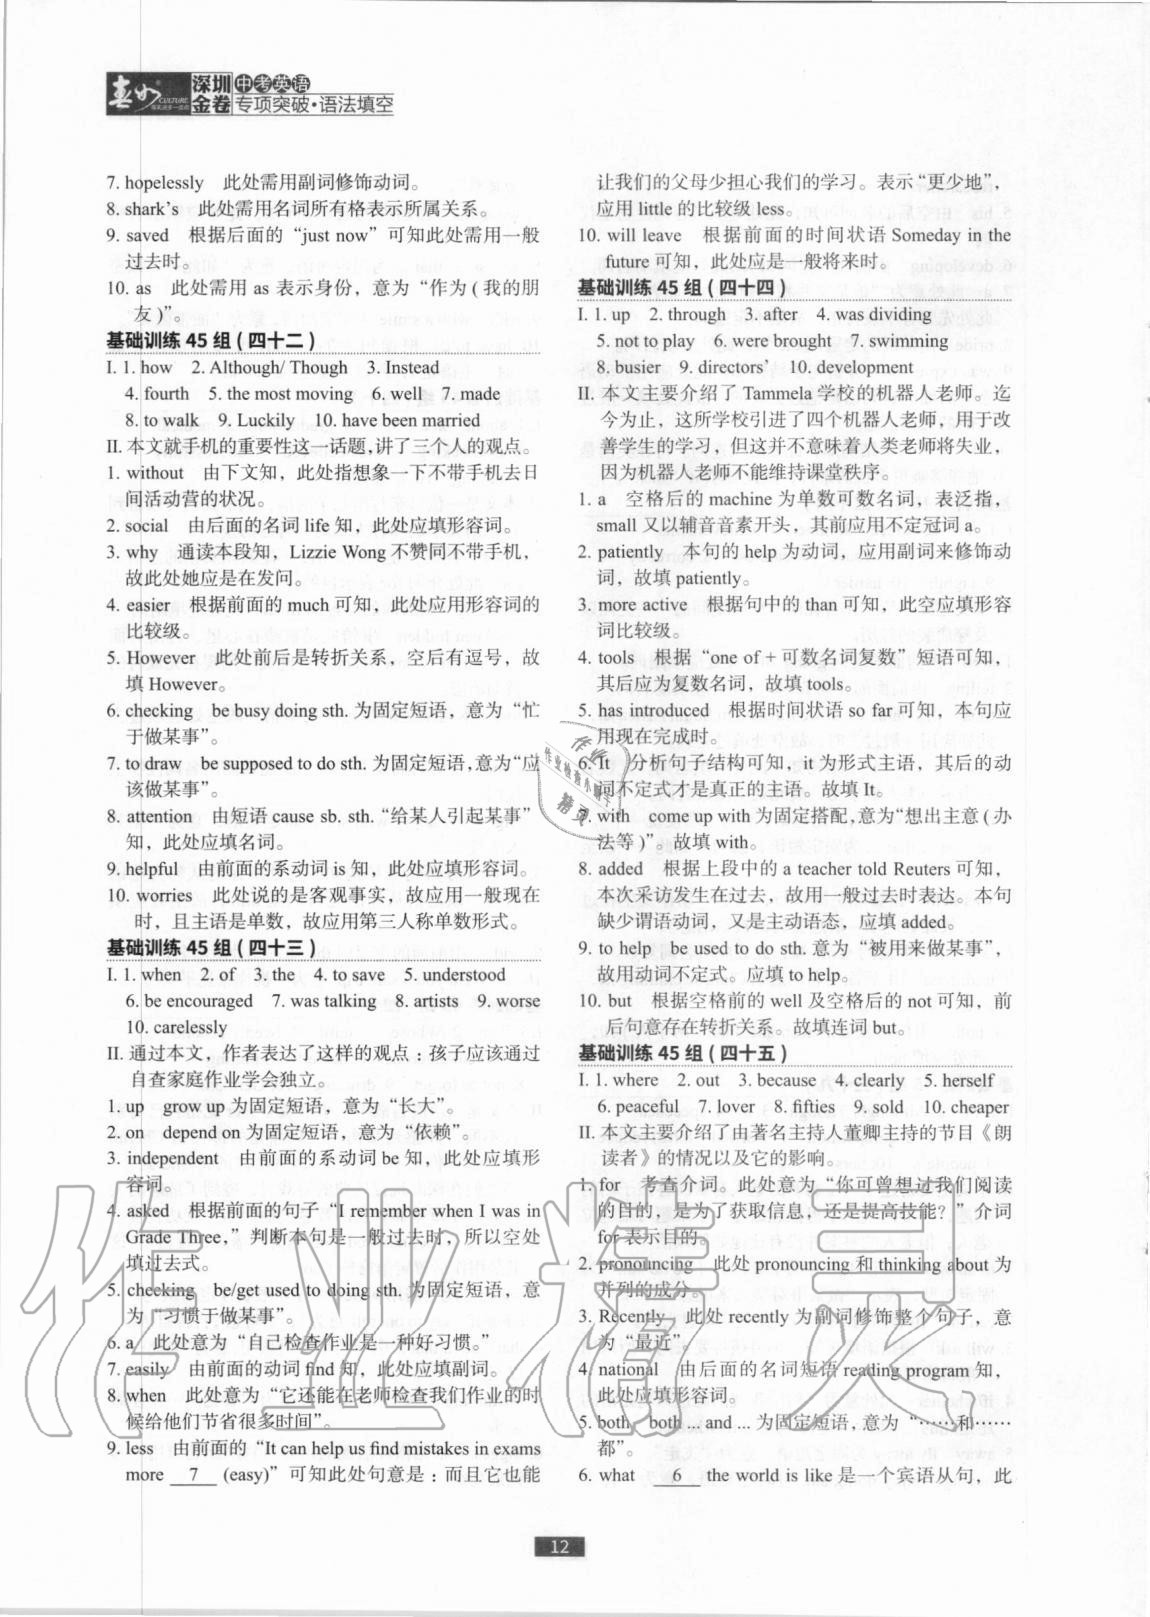 春如
CULTURE
深圳
金卷
中考英语
专项突破·语法填空
7. hopelessly 此处需用副词修饰动词。
8. shark's 此处需用名词所有格表示所属关系。
9. saved 根据后面的“just now”可知此处需用一般
过去时。
10. as 此处需用 as 表示身份，意为“作为 ( 我的朋
友 )”。
基础训练 45 组 ( 四十二 )
I. 1. how 2. Although/ Though 3. Instead
4. fourth 5. the most moving 6. well 7. made
8. to walk 9. Luckily 10. have been married
II. 本文就手机的重要性这一话题,讲了三个人的观点。
1. without 由下文知，此处指想象一下不带手机去日
间活动营的状况。
2. social 由后面的名词 life 知，此处应填形容词。
3. why 通读本段知，Lizzie Wong 不赞同不带手机，
故此处她应是在发问。
4. easier 根据前面的 much 可知，此处应用形容词的
比较级。
5. However 此处前后是转折关系，空后有逗号，故
填 However。
6. checking be busy doing sth. 为固定短语，意为“忙
于做某事”。
7. to draw be supposed to do sth. 为固定短语,意为“应
该做某事”。
8. attention 由短语 cause sb. sth. “给某人引起某事”
知，此处应填名词。
9. helpful 由前面的系动词 is 知，此处应填形容词。
10. worries 此处说的是客观事实，故应用一般现在
时，且主语是单数，故应用第三人称单数形式。
基础训练 45 组 ( 四十三 )
I. 1. when 2. of 3. the 4. to save 5. understood
6. be encouraged 7. was talking 8. artists 9. worse
10. carelessly
II. 通过本文，作者表达了这样的观点：孩子应该通过
自查家庭作业学会独立。
1. up grow up 为固定短语，意为“长大”。
2. on depend on 为固定短语，意为“依赖”。
3. independent 由前面的系动词 be 知，此处应填形
容词。
4. asked 根据前面的句子“I remember when I was in
Grade Three，”判断本句是一般过去时，所以空处
填过去式。
5. checking be/get used to doing sth. 为固定短语，意
为“习惯于做某事”。
6. a 此处意为“自己检查作业是一种好习惯。”
7. easily 由前面的动词 find 知，此处应填副词。
8. when 此处意为“它还能在老师检查我们作业的时
候给他们节省很多时间”。
9. less 由前面的“It can help us find mistakes in exams
more 7 (easy)”可知此处句意是：而且它也能
让我们的父母少担心我们的学习。表示“更少地”，
应用 little 的比较级 less。
10. will leave 根据前面的时间状语 Someday in the
future 可知，此处应是一般将来时。
基础训练 45 组 ( 四十四 )
I. 1. up 2. through 3. after 4. was dividing
5. not to play 6. were brought 7. swimming
8. busier 9. directors' 10. development
II. 本文主要介绍了 Tammela 学校的机器人老师。迄
今为止，这所学校引进了四个机器人老师，用于改
善学生的学习，但这并不意味着人类老师将失业，
因为机器人老师不能维持课堂秩序。
1. a 空格后的 machine 为单数可数名词，表泛指，
small 又以辅音音素开头，其前应用不定冠词 a。
2. patiently 本句的 help 为动词，应用副词来修饰动
词，故填 patiently。
3. more active 根据句中的 than 可知，此空应填形容
词比较级。
4. tools 根据“one of + 可数名词复数”短语可知，
其后应为复数名词，故填 tools。
5. has introduced 根据时间状语 so far 可知，本句应
用现在完成时。
6. It 分析句子结构可知，it 为形式主语，其后的动
词不定式才是真正的主语。故填 It。
7. with come up with 为固定搭配,意为“想出主意 ( 办
法等 )”。故填 with。
8. added 根据上段中的 a teacher told Reuters 可知，
本次采访发生在过去，故用一般过去时表达。本句
缺少谓语动词，又是主动语态，应填 added。
9. to help be used to do sth. 意为“被用来做某事”，
故用动词不定式。应填 to help。
10. but 根据空格前的 well 及空格后的 not 可知，前
后句意存在转折关系。故填连词 but。
基础训练 45 组 ( 四十五 )
I. 1. where 2. out 3. because 4. clearly 5. herself
6. peaceful 7. lover 8. fifties 9. sold 10. cheaper
II. 本文主要介绍了由著名主持人董卿主持的节目《朗
读者》的情况以及它的影响。
1. for 考查介词。此处意为“你可曾想过我们阅读
的目的，是为了获取信息，还是提高技能？”介词
for 表示目的。
2. pronouncing 此处 pronouncing 和 thinking about 为
并列的成分。
3. Recently 此处 recently 为副词修饰整个句子，意
为“最近”
4. national 由后面的名词短语 reading program 知，
此处应填形容词。
5. both both ... and ... 为固定短语，意为“……和……
都”。
6. what 6 the world is like 是一个宾语从句，此
12
作业精灵